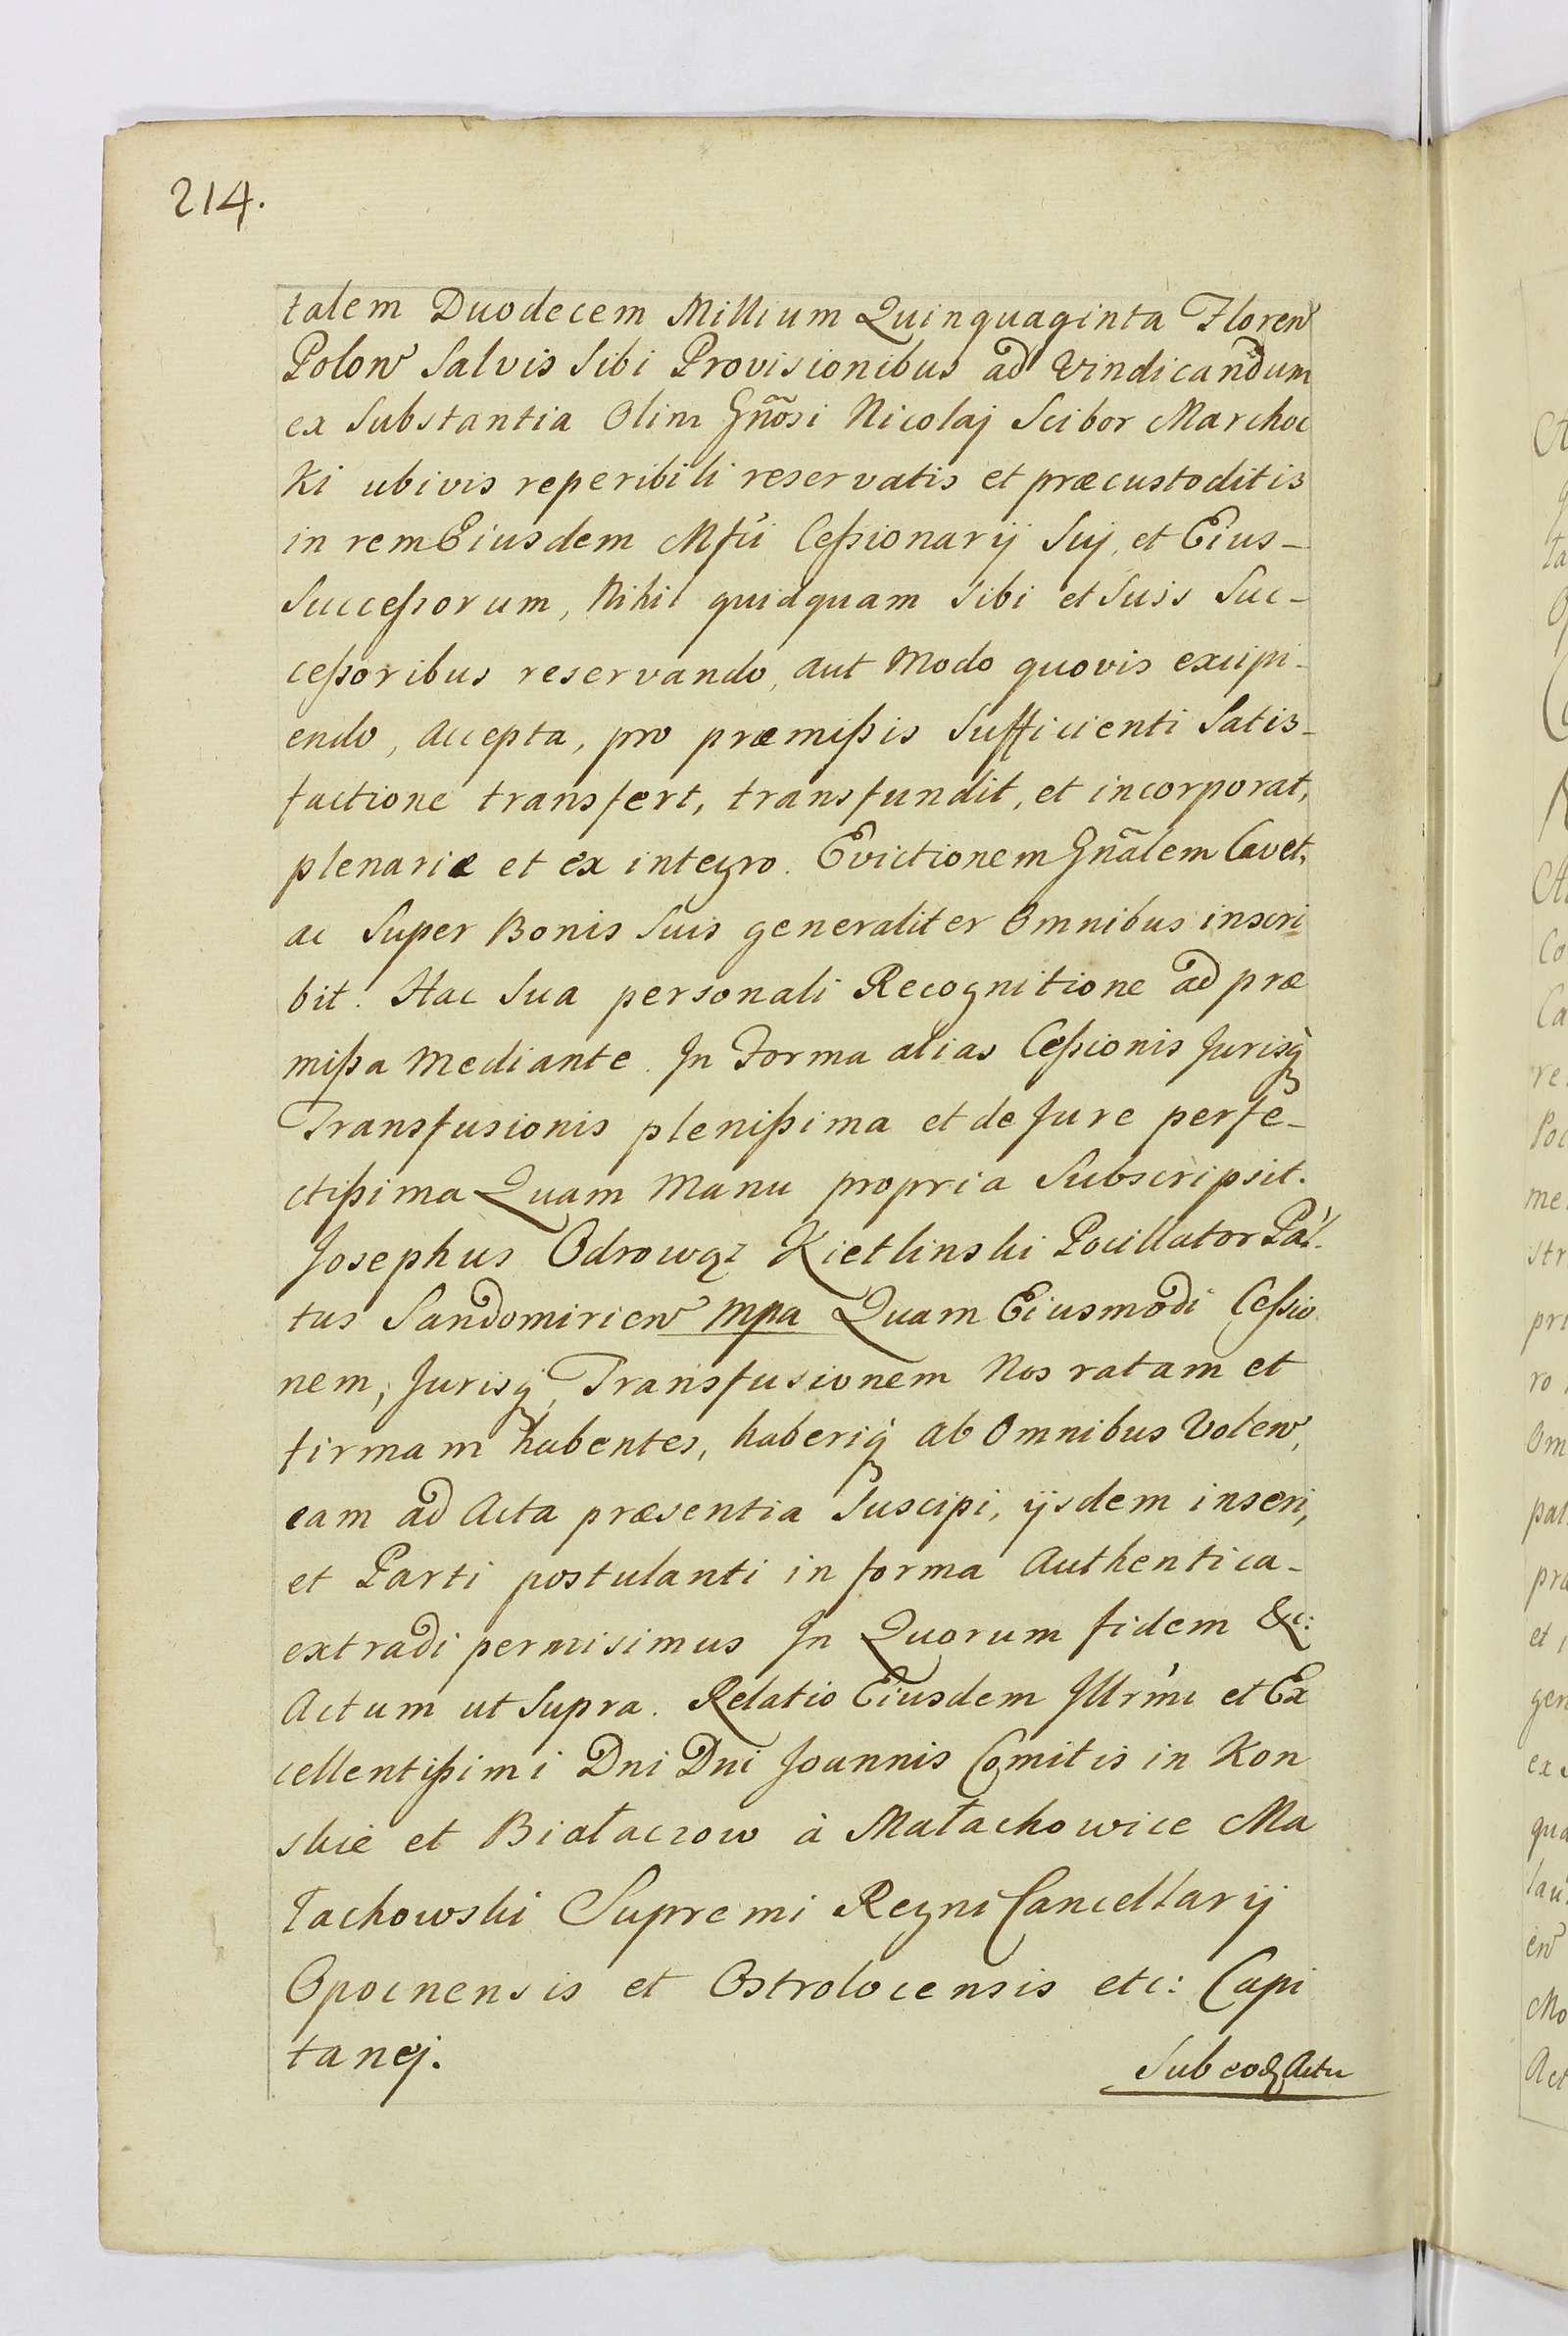 214.
talem Duodecem Millium Quinquaginta Floren
Polon Salvis Sibi Provisionibus ad Vindicandum
ex Substantia Olim Gnõsi Nicolaj Scibor Marchoc
ki ubivis reperibili reservatis et præcustoditis
in rem Eiusdem Mfci Ceßionarij Suj, et Eius-
Succeßorum, Nihil quidquam Sibi et Suis Suc-
ceßoribus reservando, aut Modo quovis excipi-
endo, Accepta, pro præmißis Sufficienti Satis-
factione transfert, transfundit, et incorporat,
plenarie et ex integro. Evictionem Gnãlem Cavet,
ac Super Bonis Suis generaliter Omnibus inscri
bit. Hac Sua personali Recognitione ad præ
mißa Mediante. In Forma alias Ceßionis Jurisq
Transfusionis plenißima et de Jure perfe-
ctißima Quam Manu propria Subscripsit.
Josephus Odrowąz Kietlinski Pocillator Pal-
tus Sandomirien mpa Quam Eiusmodi Ceßio
nem, Jurisq Transfusionem Nos ratam et
firmam habentes, haberiq ab Omnibus Volen,
eam ad Acta præsentia Suscipi, ijsdem inseri,
et Parti postulanti in forma Authentica-
extradi permisimus In Quorum fidem &c:
Actum ut Supra. Relatio Eiusdem Illrmi et Ex
cellentißimi Dni Dni Joannis Comitis in Kon
skie et Białaczow à Małachowice Ma
łachowski Supremi Regni Cancellarij
Opocnensis et Ostrolocensis etc: Capi
tanej.
Sub eodq Actu